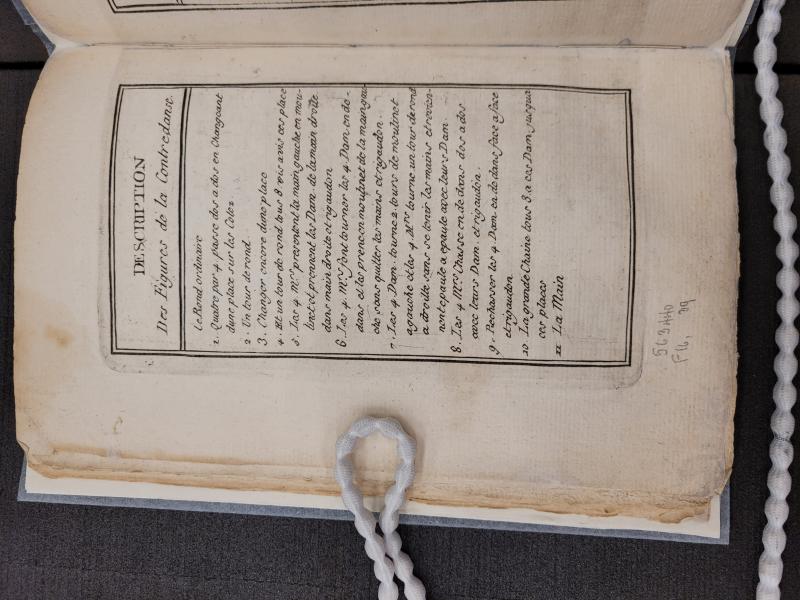 DESCRIPTION
Des Figures de la Contredanse.
Le Rond ordinaire
1. Quatre par 4 passe dos a dos en Changeant
dune place sur les Cotez
2. Un tour de rond.
3. Changer encore dune place
4. Et un tour de rond tous 8 vis a vis ces place
5. Les 4 Mrs. presentent la main gauche en mou-
linet et prennent les Dam. de la main droite
dans main droite et rigaudon
6 Les 4. Mrs font tourner les 4 Dam. en de-
dans et les prene en moulinet de la main gau
che sans quitter les mains et rigaudon.
7. Les 4 Dam. tourne 2 tours de moulinet
a gauche et les 4 Mrs tourne un tour de rond
a droite sans se tenir les mains et revien-
nent epaule a epaule avec leurs Dam.
8. Les 4 Mrs Chasse en dedans dos a dos
avec leurs Dam. et rigaudon.
9. Rechasser les 4 Dam. en dedans face a face
et rigaudon.
10. La grande Chaine tous 8 a ces Dam. jusqua
ces places
11 La Main